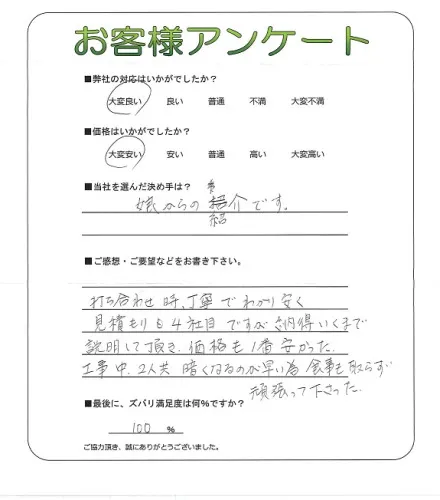 お客様アンケート
■弊社の対応はいかがでしたか?
大変良い 良い 普通 不満 大変不満
■価格はいかがでしたか?
大変安い 安い 普通 高い 大変高い
■当社を選んだ決め手は?
娘からの紹介です。
紹
■ご感想・ご要望などをお書き下さい。
打ち合わせ時、丁寧でわかり安く
見積もりも4社目ですが納得いくまで
説明して頂き、価格も1番安かった。
工事中、2人共暗くなるのが早い為食事も取らず
頑張って下さった。
■最後に、ズバリ満足度は何%ですか?
100 %
ご協力頂き、誠にありがとうございました。